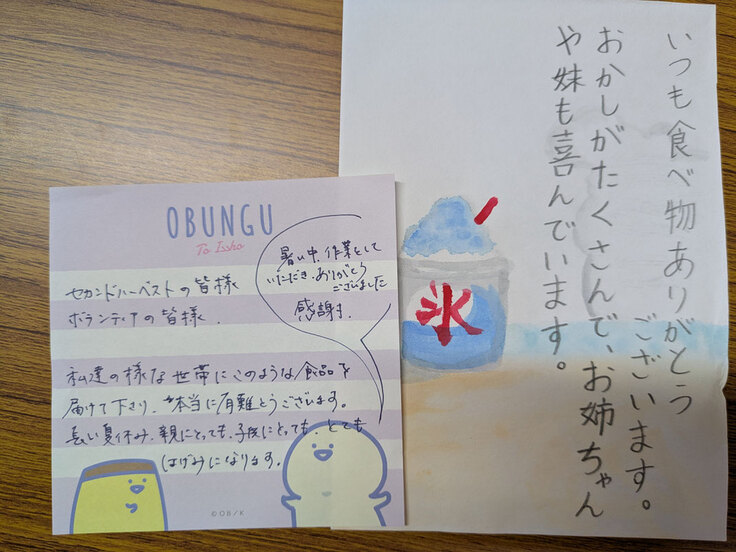 OBUNGU
To Issho
セカンドハーベストの皆様
ボランティアの皆様.
暑い中、作業をして
いただき、ありがとう
ございました
感謝!
私達の様な世帯にこのような食品を
届けて下さり、本当に有難とうございます。
長い夏休み、親にとっても、子供にとっても、とても
はげみになります。
©OB/K
いつも食べ物ありがとう
ございます。
おかしがたくさんで、お姉ちゃん
や妹も喜んでいます。
氷